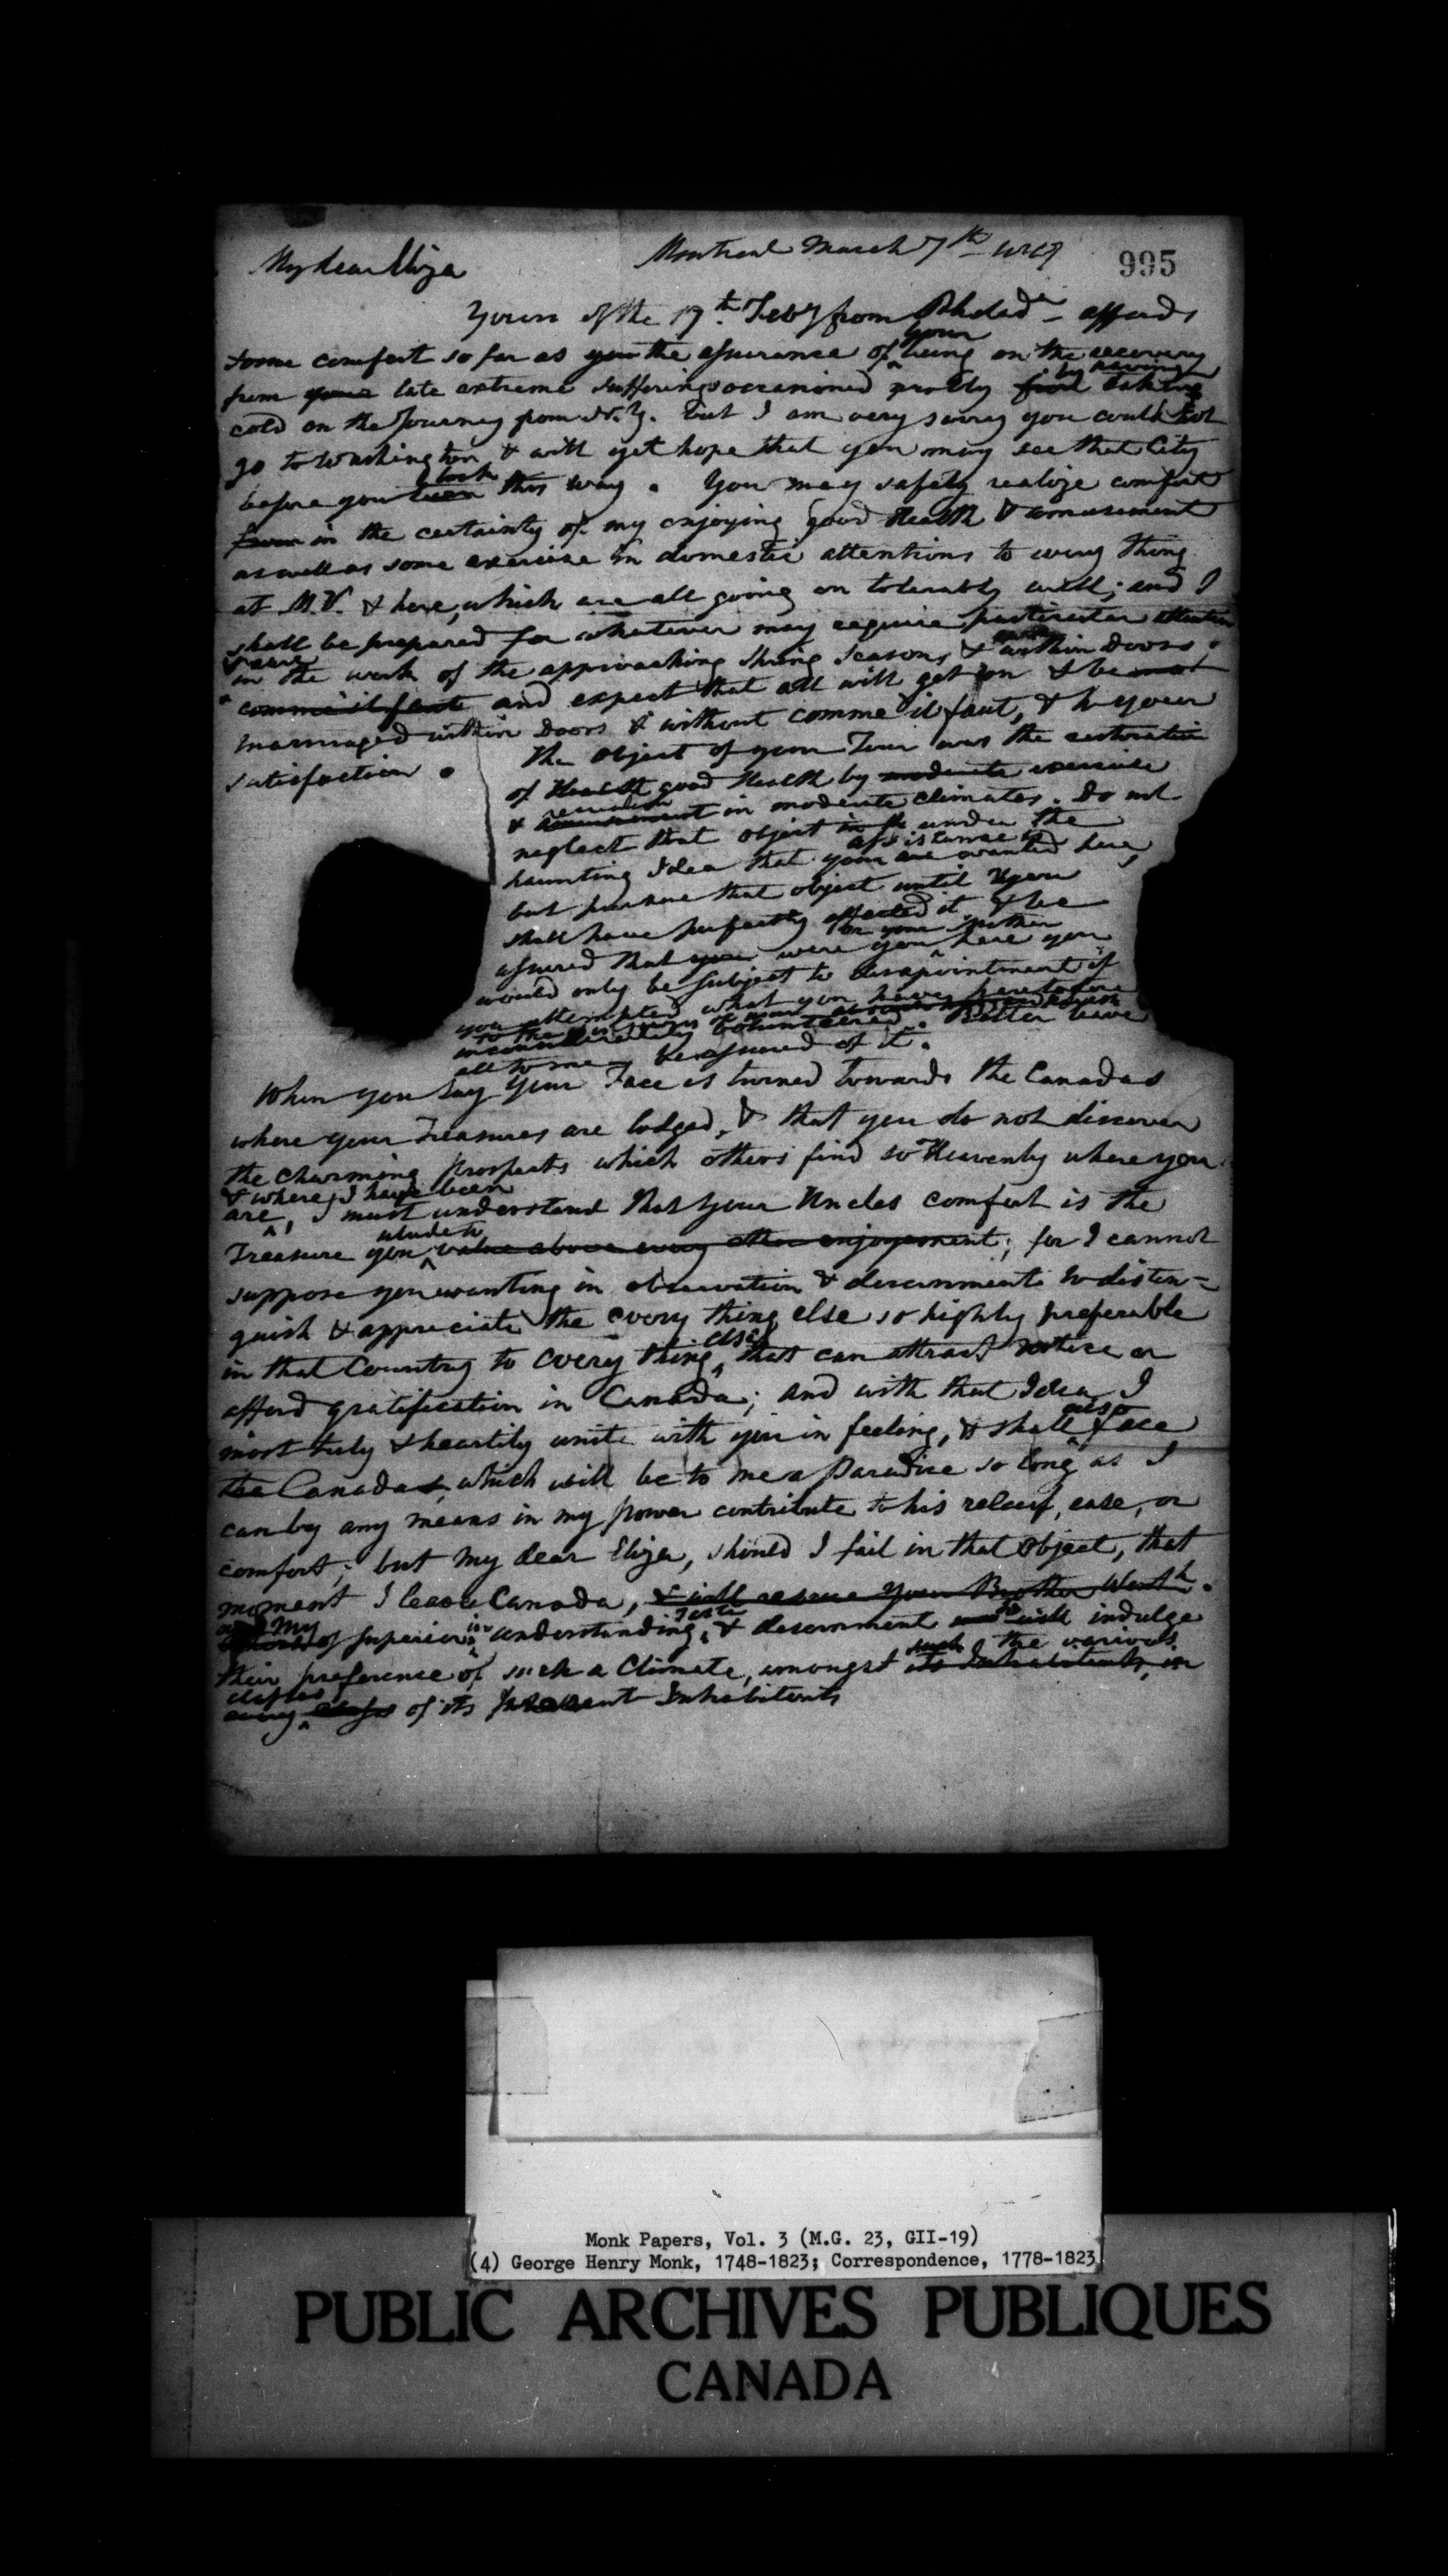 995
My dear Eliza
Montreal March 7th
Yours of the 17th Feby from Philada - affords
some comfort so far as you the assurance of your being on the recovery
from your late extreme sufferings occasioned probly from by having taking
cold on the Journey from N.Y. but I am very sorry you could not
go to Washington & will yet hope that you may see that City
before you turn look this way. You may safely realize comfort
from in the certainty of my enjoying good Health & amusement
as well as some exercise in domestic attentions to every thing
at M.V. & here, which are all going on tolerably well; and I
shall be prepared for whatever may require particular attention
& care in the work of the approaching Spring Seasons, & within doors.
comme il faut and expect that all will get on & be
mannaged within doors & without comme il faut, & to your
satisfaction.
The object of your Tour was the restoration
of Health good Health by moderate exercise
& amusement in moderate climates. Do not
neglect that object in the under the
haunting Idea that your assistance is are wanted here,
but pursue that object until you
shall have perfectly effected it & be
assured that you were you or your Mother here you
would only be subject to disapointment if
you attempted what you have heretofore
volunteered. Better leave
all to me, be assured of it.
When you say your Face is turned towards the Canadas
where your Treasures are lodged, & that you do not discover
the charming prospects which others find so Heavenly where you
are, & where I have been I must understand that your Uncles comfort is the
Treasure you allude to value above every other enjoyement; for I cannot
suppose you wanting in observation & discernment to distin-
guish & appreciate the every thing else so highly preferable
in that Country to every thing else, that can attract notice or
afford gratification in Canada; and with that Idea, I
most truly & heartily unite with you in feeling, & shall also face
the Canadas, which will be to me a Paradise so long as I
can by any means in my power contribute to his releif, ease, or
comfort; but my dear Eliza, should I fail in that object, that
moment I leave Canada, & will rescue your Brother Wentth.
and My of superior understanding, taste & discernment and will to indulge
their preference of such a Climate, amongst its Inhabitants, in such the various
every class classes of its present Inhabitants
Monk Papers, Vol. 3 (M.G. 23, GII-19)
(4) George Henry Monk, 1748-1823; Correspondence, 1778-1823
PUBLIC ARCHIVES PUBLIQUES
CANADA